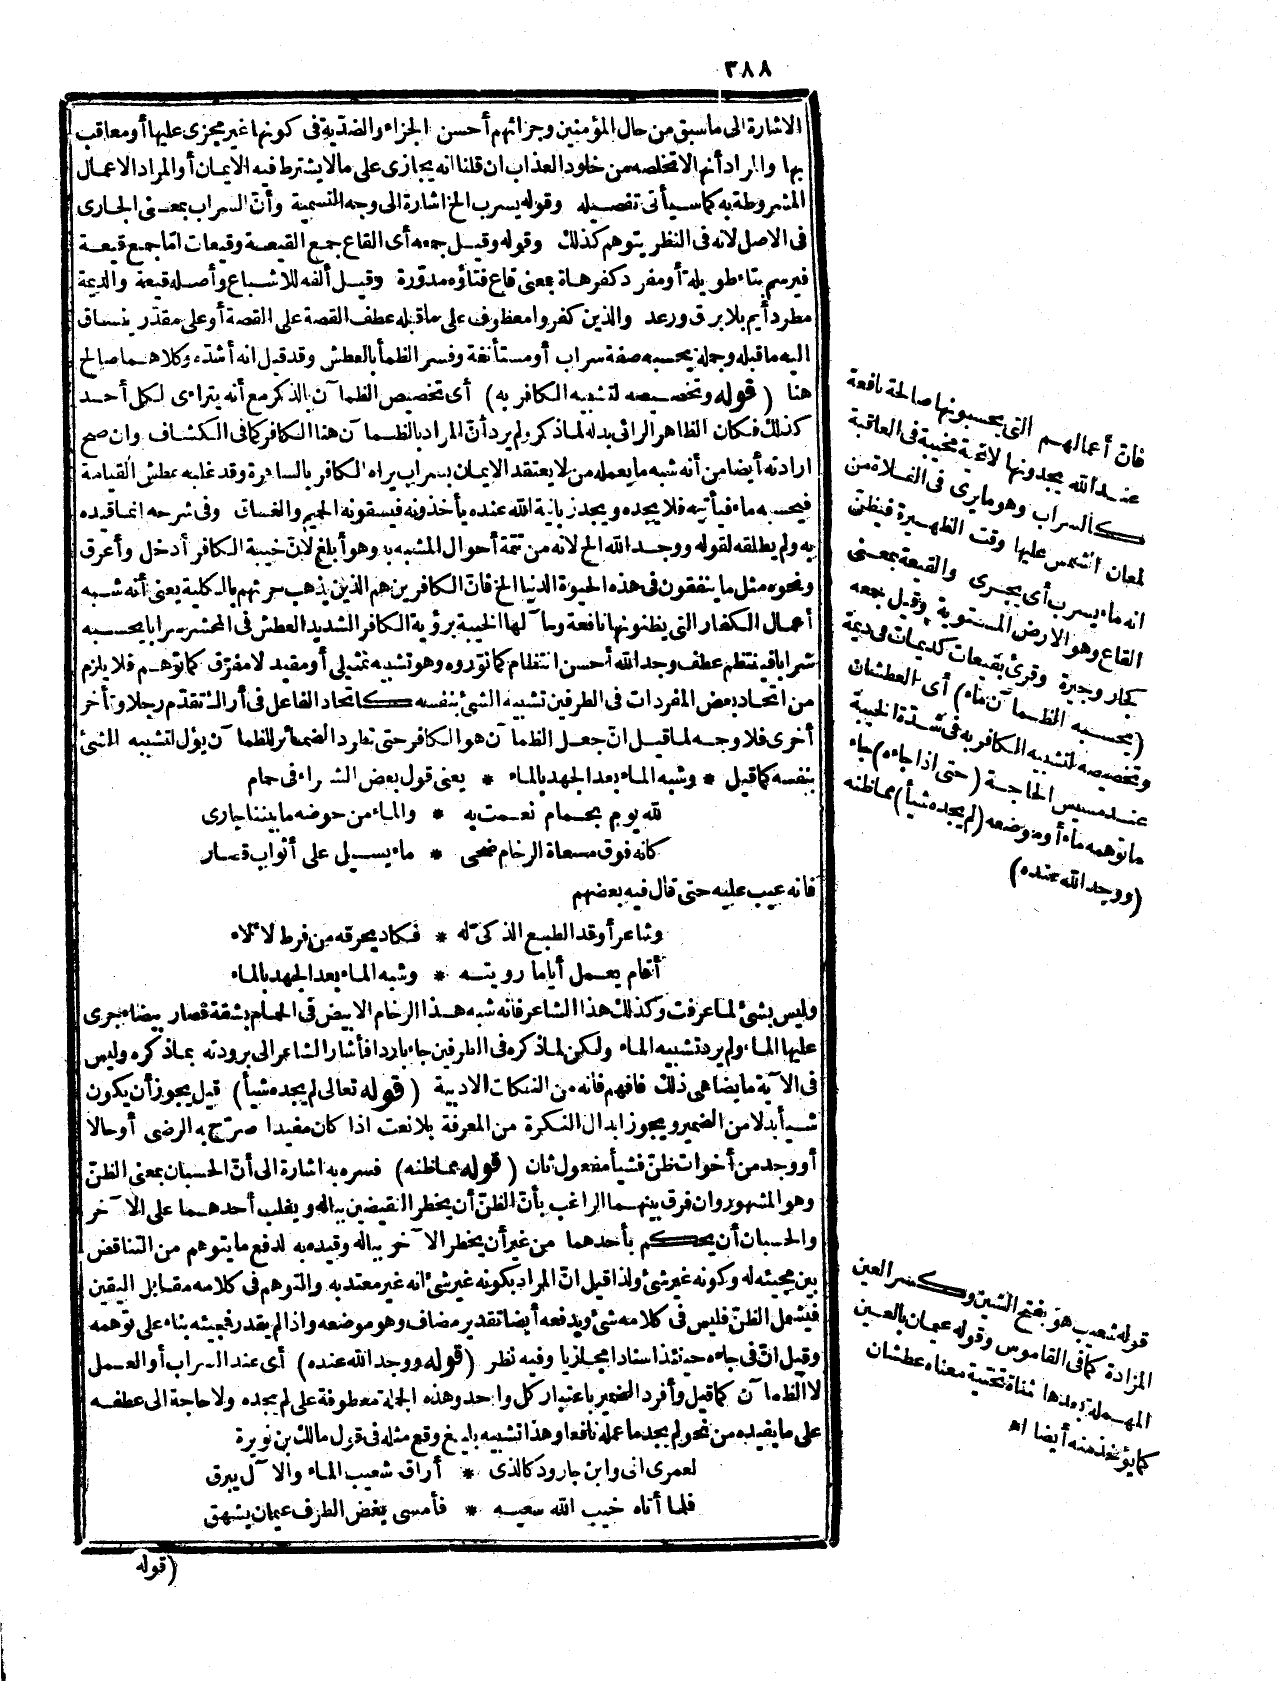 ٣٨٨
الاشارة الى ماسبق من حال المؤمنين وجزائهم أحسن الجزاء والضدّية فى كونها غير مجزى عليها أو معاقب
بها والمراد أنها لا تخلصه من خلود العذاب ان قلنا انه يجازى على مالا يشترط فيه الايمان أو المراد الاعمال
المشروطة به كما سيأتى تفصيله وقوله يسرب الخ اشارة الى وجه التسمية وأنّ السراب بمعنى الجارى
فى الاصل لانه فى النظر يتوهم كذلك وقوله وقيل جمعه أى القاع جمع القيعة وقيعات امّا جمع قيعة
فيرسم بتاء طويلة أو مفرد كفرهاة بمعنى قاع فتاؤه مدوّرة وقيل ألفه للاشباع وأصله قيعة والديمة
مطر دائم بلا برق ورعد والذين كفروا معطوف على ماقبله عطف القصة على القصة أو على مقدّر ينساق
اليه ماقبله وجملة يحسبه صفة سراب أو مستأنفة وفسر الظمأ بالعطش وقد قيل انه أشدّه وكلاهما صالح
هنا (قوله وتخصيصه لتشبيه الكافر به) أى تخصيص الظمآن بالذكر مع أنه يتراءى لكل أحد
كذلك فكان الظاهر الرائى بدله لما ذكر ولم يرد أنّ المراد بالظمآن هنا الكافر كما فى الكشاف وان صح
ارادته أيضا من أنه شبه ما يعمله من لا يعتقد الايمان بسراب يراه الكافر بالساهرة وقد غلبه عطش القيامة
فيحسبه ماء فيأتيه فلا يجده ويجد زبانية الله عنده يأخذونه فيسقونه الحميم والغساق وفى شرحه انما قيده
به ولم يطلقه لقوله ووجد الله الخ لانه من تتمة أحوال المشبه به وهو أبلغ لانّ خيبة الكافر أدخل وأعرق
ونحوه مثل ما ينفقون فى هذه الحيوة الدنيا الخ فانّ الكافرين هم الذين يذهب حرثهم بالكلية يعنى أنه شبه
أعمال الكفار التى يظنونها نافعة ومآلها الخيبة برؤية الكافر الشديد العطش فى المحشر سرابا يحسبه
شرابا فينتظم عطف وجد الله أحسن انتظام كما نوّروه وهو تشبيه تمثيلى أو مقيد لا مفرّق كما توهم فلا يلزم
من اتحاد بعض المفردات فى الطرفين تشبيه الشئ بنفسه كاتحاد الفاعل فى أراك تقدّم رجلا وتؤخر
أخرى فلا وجه لما قيل انّ جعل الظمآن هو الكافر حتى تعود الضمائر للظمآن يؤل لتشبيه الشئ
بنفسه كما قيل * وشبه الماء بعد الجهد بالماء * يعنى قول بعض الشعراء فى حمام
لله يوم بحمام نعمت به * والماء من حوضه ما بيننا جارى
كانه فوق مسعاة الرخام ضحى * ماء يسيل على أثواب قصار
فانه عيب عليه حتى قال فيه بعضهم
وشاعر أوقد الطبع الذكىّ له * فكاد يحرقه من فرط لألاء
أقام يعمل أياما رويته * وشبه الماء بعد الجهد بالماء
وليس بشئ لما عرفت وكذلك هذا الشاعر فانه شبه هذا الرخام الابيض فى الحمام بشقة قصار بيضاء جرى
عليها الماء ولم يرد تشبيه الماء ولكن لما ذكره فى الطرفين جاء باردا فأشار الشاعر الى برودته بما ذكره وليس
فى الآية ما يضاهى ذلك فافهم فانه من النكات الادبية (قوله تعالى لم يجده شيأ) قيل يجوز أن يكون
شيأ بدلا من الضمير ويجوز ابدال النكرة من المعرفة بلا نعت اذا كان مفيدا صرّح به الرضى أو حالا
أو وجد من أخوات ظنّ فشيأ مفعول ثان (قوله مما ظنه) فسره به اشارة الى أنّ الحسبان بمعنى الظنّ
وهو المشهور وان فرق بينهما الراغب بأنّ الظنّ أن يخطر النقيضين بباله ويغلب أحدهما على الآخر
والحسبان أن يحكم بأحدهما من غير أن يخطر الآخر بباله وقيده به لدفع ما يتوهم من التناقض
بين مجيئه له وكونه غير شئ ولذا قيل انّ المراد بكونه غير شئ انه غير معتد به والتوهم فى كلامه مقابل اليقين
فيشمل الظنّ فليس فى كلامه شئ ويدفعه أيضا تقدير مضاف وهو موضعه واذا لم يقدر فمجيئه بناء على توهمه
وقيل انّ فى جاءه حينئذ اسنادا مجازيا وفيه نظر (قوله ووجد الله عنده) أى عند السراب أو العمل
لا الظمآن كما قيل وأفرد الضمير باعتبار كل واحد وهذه الجملة معطوفة على لم يجده ولا حاجة الى عطفه
على ما يفيده من نحو لم يجد ما عمله نافعا وهذا تشبيه بليغ وقع مثله فى قول مالك بن نويرة
لعمرى انى وابن جارود كالذى * أراق شعيب الماء والآل يبرق
فلما أتاه خيب الله سعيه * فأمسى يغض الطرف عيمان يشهق
(قوله
فانّ أعمالهم التى يحسبونها صالحة نافعة
عند الله يجدونها لاغية مخيبة فى العاقبة
كالسراب وهو ما يرى فى الفلاة من
لمعان الشمس عليها وقت الظهيرة فيظنّ
انه ماء يسرب أى يجرى والقيعة بمعنى
القاع وهو الارض المستوية وقيل جمعه
كجار وجيرة وقرئ بقيعات كديمات فى ديمة
(يحسبه الظمآن ماء) أى العطشان
وتخصيصه لتشبيه الكافر به فى شدّة الخيبة
عند مسيس الحاجة (حتى اذا جاءه) جاء
ما توهمه ماء أو موضعه (لم يجده شيأ) مما ظنه
(ووجد الله عنده)
قوله شعيب هو بفتح الشين وكسر العين
المزادة كما فى القاموس وقوله عيمان بالعين
المهملة بعدها مثناة تحتية معناه عطشان
كما يؤخذ منه أيضا اه